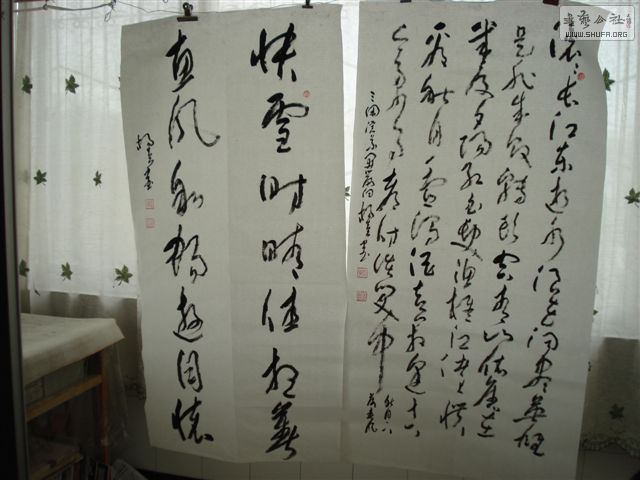 書藝公社
WWW.SHUFA.ORG
滚滚长江东逝水浪花淘尽英雄
是非成败转头空青山依旧在
几度夕阳红白发渔樵江渚上惯
看秋月一壶浊酒喜相逢
古今多少事都付笑谈中
三国演义开篇词
快雪时晴佳想
惠风和畅游目怀